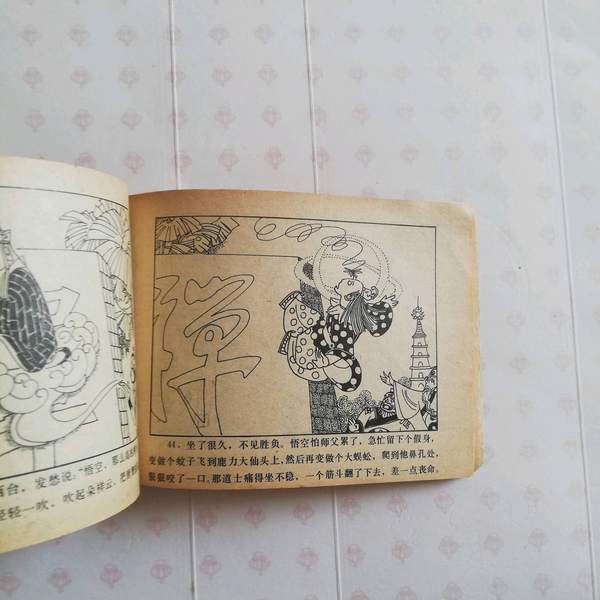 禅
44．坐了很久，不见胜负。悟空怕师父累了，急忙留下个假身，
变做个蚊子飞到鹿力大仙头上，然后再变做个大蜈蚣，爬到他鼻孔处，
狠狠咬了一口。那道士痛得坐不稳，一个筋斗翻了下去，差一点丧命。
台，发愁说。“悟空，那么高
轻一吹，吹起朵祥云，把